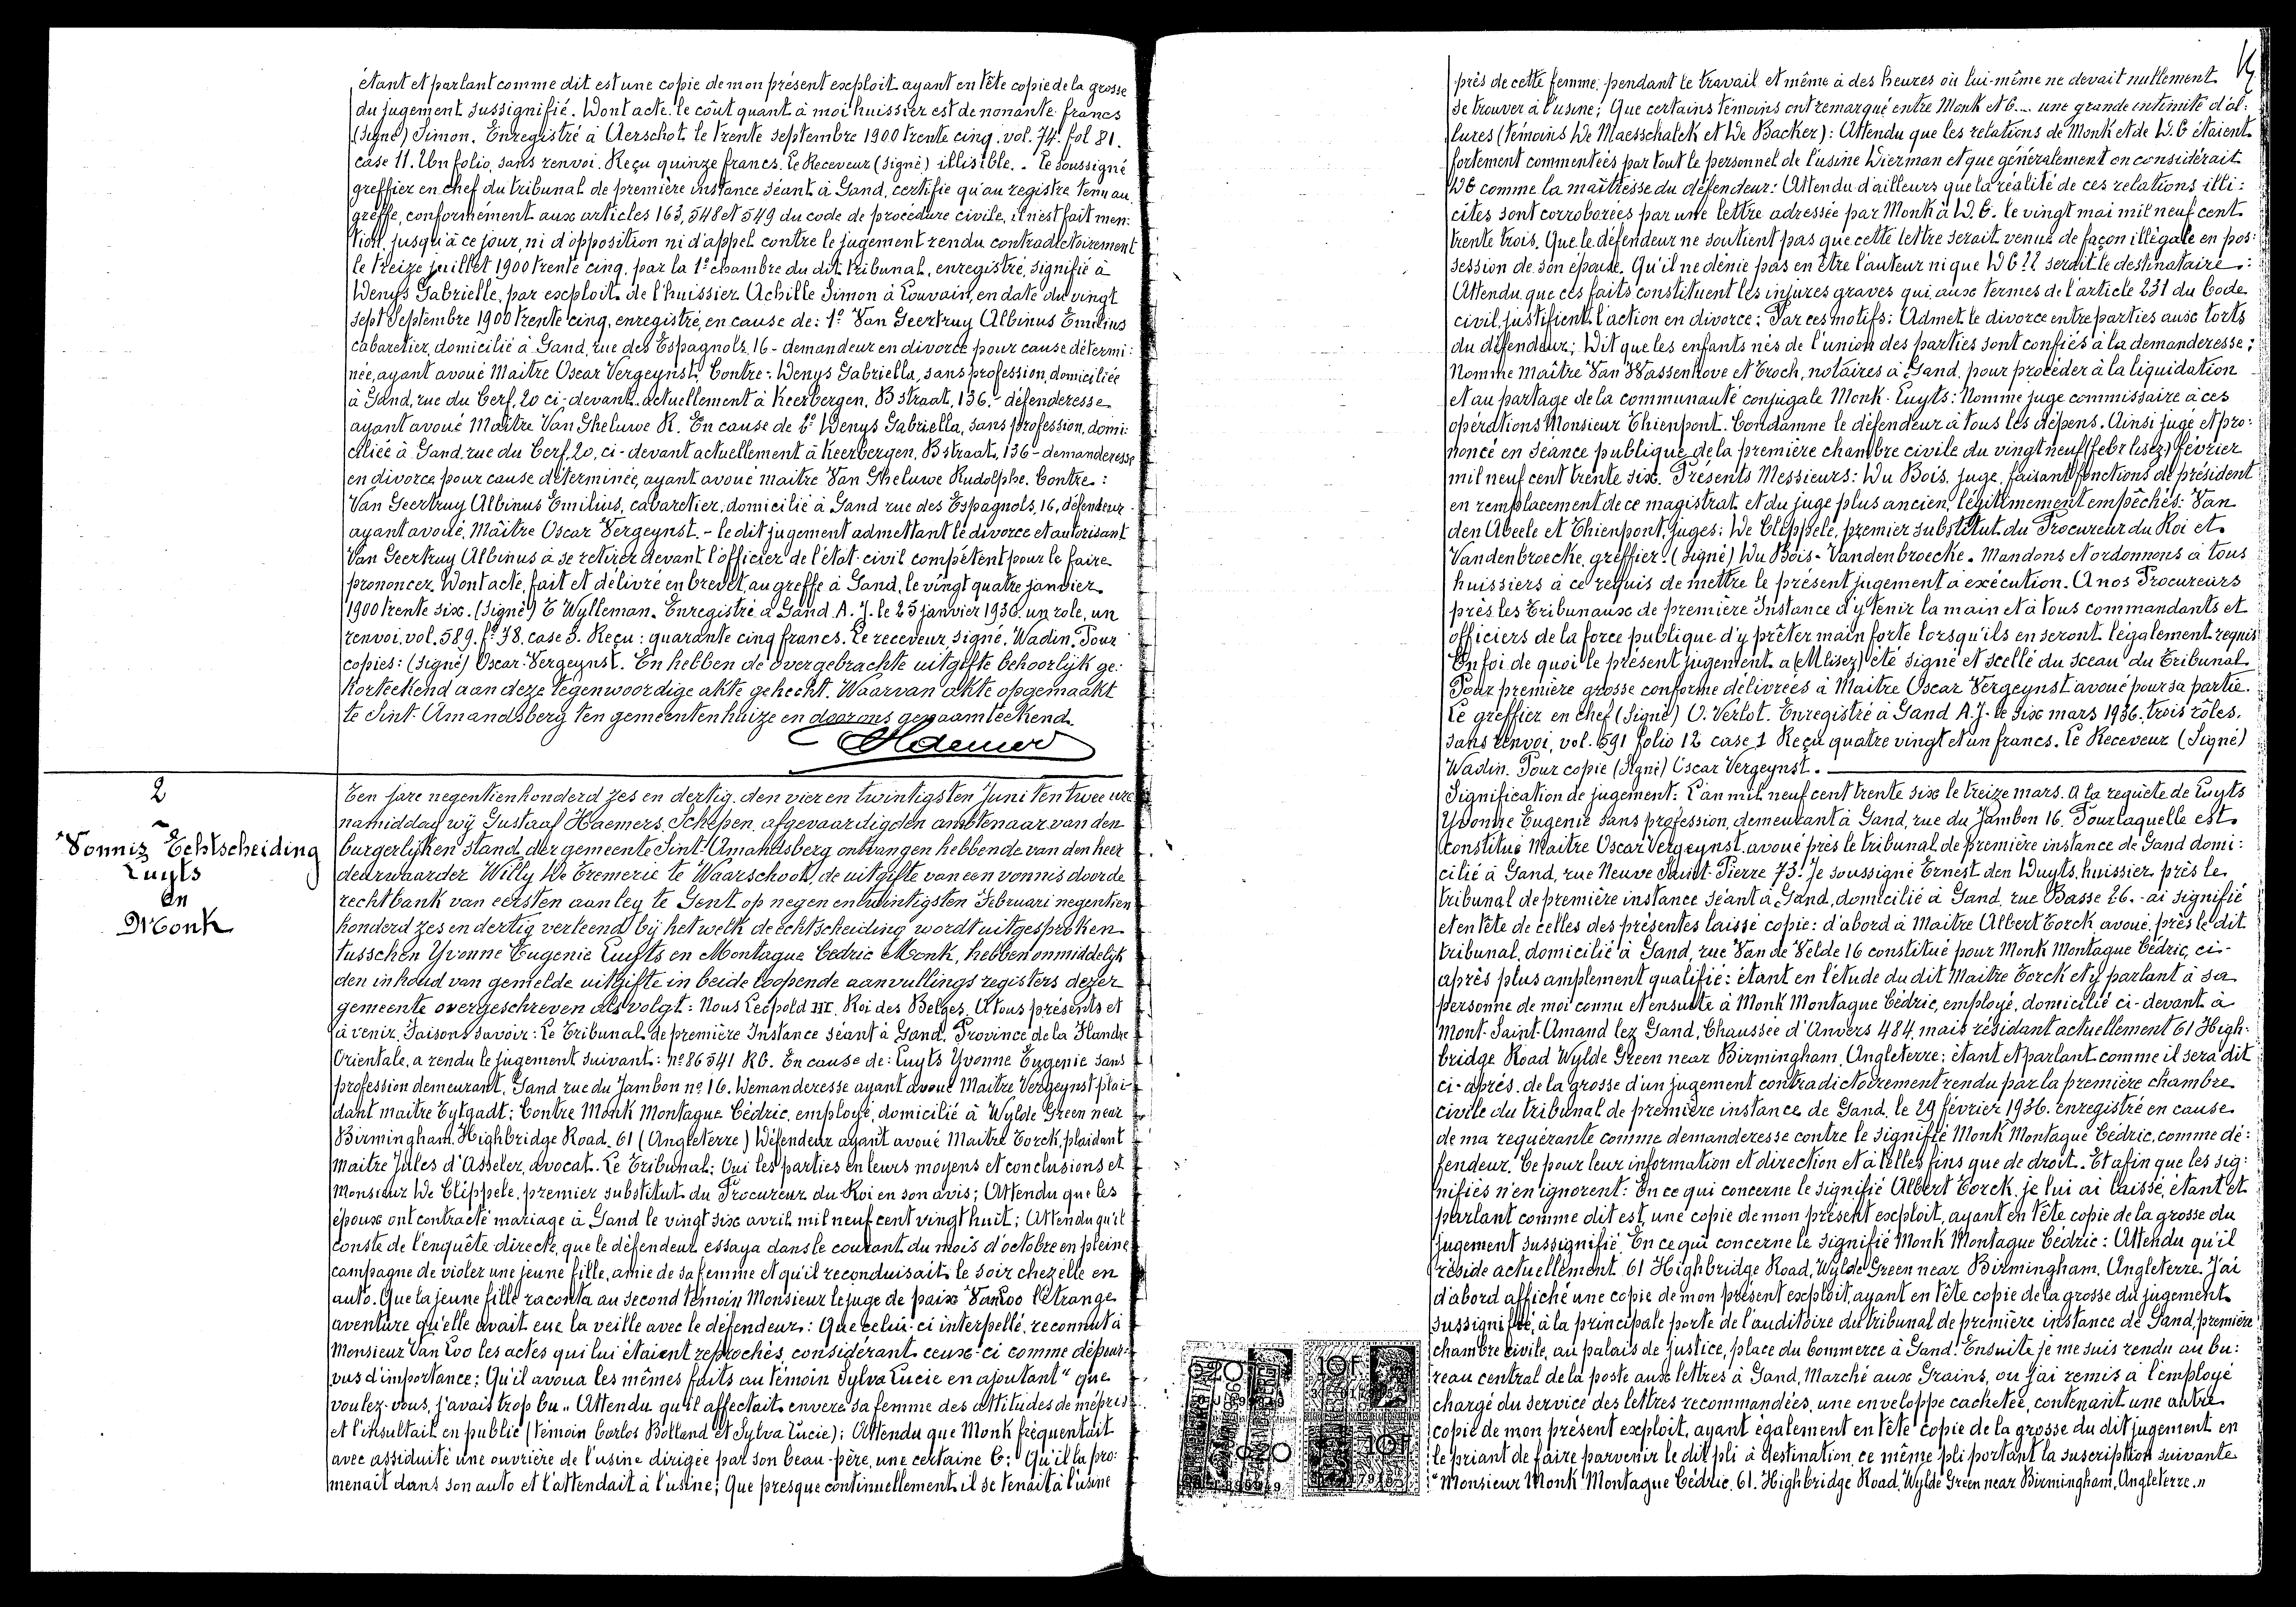 étant et parlant comme dit est une copie de mon présent exploit ayant en tête copie de la grosse
du jugement sussignifié. Dont acte. le coût quant à moi huissier est de nonante francs
(Signé) Simon. Enregistré à Aerschot le trente septembre 1900 trente cinq. vol. 74. fol 81.
case 11. Un folio, sans renvoi. Reçu quinze francs. Le Receveur (signé) illisible. . Le soussigné
greffier en chef du tribunal de première instance séant à Gand, certifie qu'au registre tenu au
greffe, conformément aux articles 163, 548 et 549 du code de procédure civile, il n'est fait men:
tion, jusqu'à ce jour, ni d'opposition ni d'appel contre le jugement rendu contradictoirement
le treize juillet 1900 trente cinq, par la 1e chambre du dit tribunal, enregistré, signifié à
Denys Gabrielle, par exploit de l'huissier Achille Simon à Louvain, en date du vingt
sept Septembre 1900 trente cinq, enregistré, en cause de: 1° Van Geertruy Albinus Emilius
cabaretier, domicilié à Gand, rue des Espagnols, 16 - demandeur en divorce pour cause détermi:
née, ayant avoué Maitre Oscar Vergeynst. Contre: Denys Gabriella, sans profession, domiciliée
à Gand, rue du Cerf, 20 ci-devant actuellement à Keerbergen, B straat, 136. - défenderesse
ayant avoué Maître Van Gheluwe R. En cause de Denys Gabriella, sans profession, domi:
ciliée à Gand, rue du Cerf, 20, ci-devant actuellement à Keerbergen, B straat, 136 - demanderesse
en divorce pour cause déterminée, ayant avoué maitre Van Gheluwe Rudolphe. Contre:
Van Geertruy Albinus Emilius, cabaretier, domicilié à Gand rue des Espagnols, 16, défendeur
ayant avoué, Maître Oscar Vergeynst. - le dit jugement admettant le divorce et autorisant
Van Geertruy Albinus à se retirer devant l'officier de l'état-civil compétent pour le faire
prononcer. Dont acte, fait et délivré en brevet, au greffe à Gand, le vingt quatre janvier
1900 trente six. (Signé) E Wylleman. Enregistré à Gand A. J. le 25 janvier 1936. un role, un
renvoi. vol. 589. f° 78, case 3. Reçu: quarante cinq francs. Le receveur, signé. Wadin. Pour
copies: (signé) Oscar Vergeynst. En hebben de overgebrachte uitgifte behoorlijk ge:
korteekend aan deze tegenwoordige akte gehecht. Waarvan akte opgemaakt
te Sint-Amandsberg ten gemeentenhuize en door ons genaamteekend.
2
Vonnis Echtscheiding
Luyts
en
Monk
Ten jare negentienhonderd zes en dertig, den vier en twintigsten Juni ten twee ure
namiddag wij Gustaaf Haemers, Schepen, afgevaardigden ambtenaar van den
burgerlijken stand der gemeente Sint-Amandsberg ontvangen hebbende van den heer
deurwaarder Willy De Tremerie te Waarschoot, de uitgifte van een vonnis door de
rechtbank van eersten aanleg te Gent op negen en twintigsten Februari negentien
honderd zes en dertig verleend bij hetwelk de echtscheiding wordt uitgesproken
tusschen Yvonne Eugenie Luyts en Montague Cedric Monk, hebben onmiddelijk
den inhoud van gemelde uitgifte in beide loopende aanvullings registers dezer
gemeente overgeschreven als volgt: Nous Léopold III. Roi des Belges. A tous présents et
à venir. Faisons savoir: Le Tribunal de première Instance séant à Gand. Province de la Flandre
Orientale, a rendu le jugement suivant: n° 86541 RG. En cause de: Luyts Yvonne Eugenie sans
profession demeurant, Gand rue du Jambon n° 16. Demanderesse ayant avoué Maitre Vergeynst plai-
dant maitre Eytgadt; Contre Monk Montague Cédric, employé, domicilié à Wylde Green near
Birmingham. Highbridge Road. 61 (Angleterre) Défendeur ayant avoué Maitre Torck, plaidant
maitre Jules d'Asseler, avocat. Le Tribunal: Oui les parties en leurs moyens et conclusions et
Monsieur De Clippele, premier substitut du Procureur du Roi en son avis; Attendu que les
époux ont contracté mariage à Gand le vingt six avril mil neuf cent vingt huit; Attendu qu'il
conste de l'enquête directe, que le défendeur essaya dans le courant du mois d'octobre en pleine
campagne de violer une jeune fille, amie de sa femme et qu'il reconduisait le soir chez elle en
auto. Que la jeune fille raconta au second témoin Monsieur le juge de paix Van Loo l'étrange
aventure qu'elle avait eue la veille avec le défendeur: Que celui-ci interpellé, reconnut à
Monsieur Van Loo les actes qui lui étaient reprochés, considérant ceux-ci comme dépour-
vus d'importance; Qu'il avoua les mêmes faits au témoin Sylva Lucie en ajoutant " que
voulez-vous, j'avais trop bu„ Attendu qu'il affectait envers sa femme des attitudes de mépris
et l'insultait en public (témoin Carlos Bolland et Sylva Lucie); Attendu que Monk fréquentait
avec assiduité une ouvrière de l'usine dirigée par son beau-père, une certaine C; Qu'il la pro:
menait dans son auto et l'attendait à l'usine; Que presque continuellement il se tenait à l'usine
près de cette femme, pendant le travail et même à des heures où lui-même ne devait nullement
se trouver à l'usine; Que certains témoins ont remarqué entre Monk et C.... une grande intimité d'al:
lures (témoins De Maesschalck et De Backer): Attendu que les relations de Monk et de D. C étaient
fortement commentées par tout le personnel de l'usine Dierman et que généralement on considérait
DC comme la maîtresse du défendeur: Attendu d'ailleurs que la réalité de ces relations illi:
cites sont corroborées par une lettre adressée par Monk à D. C. le vingt mai mil neuf cent
trente trois. Que le défendeur ne soutient pas que cette lettre serait venue de façon illégale en pos:
session de son épouse. Qu'il ne dénie pas en être l'auteur ni que D C !! serait le destinataire.:
Attendu que ces faits constituent les injures graves qui, aux termes de l'article 231 du Code
civil, justifient l'action en divorce; Par ces motifs: Admet le divorce entre parties aux torts
du défendeur; Dit que les enfants nés de l'union des parties sont confiés à la demanderesse;
Nomme Maître Van Wassenhove et Troch, notaires à Gand, pour procéder à la liquidation
et au partage de la communauté conjugale Monk-Luyts: Nomme juge commissaire à ces
opérations Monsieur Thienpont. Condamne le défendeur à tous les dépens. Ainsi jugé et pro:
noncé en séance publique de la première chambre civile du vingt neuf (febr lisez) février
mil neuf cent trente six. Présents Messieurs: Du Bois, juge, faisant fonctions de président
en remplacement de ce magistrat et du juge plus ancien, légitimement empêchés: Van
den Abeele et Thienpont, juges: De Clippele, premier substitut du Procureur du Roi et
Vandenbroecke, greffier. (Signé) Du Bois - Vandenbroecke. Mandons et ordonnons à tous
huissiers à ce requis de mettre le présent jugement à exécution. A nos Procureurs
près les Tribunaux de première Instance d'y tenir la main et à tous commandants et
officiers de la force publique d'y prêter main forte lorsqu'ils en seront légalement requis
En foi de quoi le présent jugement a été signé et scellé du sceau du Tribunal
Pour première grosse conforme délivrées à Maitre Oscar Vergeynst avoué pour sa partie.
Le greffier en chef (Signé) O. Verlot. Enregistré à Gand A.J. le six mars 1936, trois rôles,
sans renvoi, vol. 591 folio 12 case 1 Reçu quatre vingt et un francs. Le Receveur (Signé)
Wadin. Pour copie (Signé) Oscar Vergeynst.
Signification de jugement: L'an mil neuf cent trente six le treize mars. A la requête de Luyts
Yvonne Eugenie sans profession, demeurant à Gand, rue du Jambon 16. Pour laquelle est
constitué Maitre Oscar Vergeynst. avoué près le tribunal de première instance de Gand domi:
cilié à Gand, rue Neuve Saint-Pierre 73. Je soussigné Ernest den Duyts, huissier près le
tribunal de première instance séant à Gand, domicilié à Gand, rue Basse 26. - ai signifié
et en tête de celles des présentes laissé copie: d'abord à Maitre Albert Torck, avoué, près le dit
tribunal, domicilié à Gand, rue Van de Velde 16 constitué pour Monk Montague Cédric, ci-
après plus amplement qualifié: étant en l'étude du dit Maitre Torck et y parlant à sa
personne de moi connu et ensuite à Monk Montague Cédric, employé, domicilié ci-devant à
Mont-Saint-Amand lez Gand, Chaussée d'Anvers 484, mais résidant actuellement 61 High-
bridge Road Wylde Green near Birmingham. Angleterre; étant et parlant comme il sera dit
ci-après. de la grosse d'un jugement contradictoirement rendu par la première chambre
civile du tribunal de première instance de Gand, le 29 février 1936. enregistré en cause
de ma requérante comme demanderesse contre le signifié Monk Montague Cédric, comme dé:
fendeur. Ce pour leur information et direction et à telles fins que de droit. Et afin que les sig:
nifiés n'en ignorent: En ce qui concerne le signifié Albert Torck, je lui ai laissé, étant et
parlant comme dit est, une copie de mon présent exploit, ayant en tête copie de la grosse du
jugement sussignifié. En ce qui concerne le signifié Monk Montague Cédric: Attendu qu'il
réside actuellement 61 Highbridge Road, Wylde Green near Birmingham. Angleterre. J'ai
d'abord affiché une copie de mon présent exploit, ayant en tête copie de la grosse du jugement
sussignifié, à la principale porte de l'auditoire du tribunal de première instance de Gand, première
chambre civile, au palais de justice, place du Commerce à Gand. Ensuite je me suis rendu au bu:
reau central de la poste aux lettres à Gand, Marché aux Grains, où j'ai remis à l'employé
chargé du service des lettres recommandées, une enveloppe cachetée, contenant une autre
copie de mon présent exploit, ayant également en tête copie de la grosse du dit jugement en
le priant de faire parvenir le dit pli à destination ce même pli portant la suscription suivante
"Monsieur Monk Montague Cédric. 61. Highbridge Road, Wylde Green near Birmingham, Angleterre.„
0.20
10F
0.20
10F